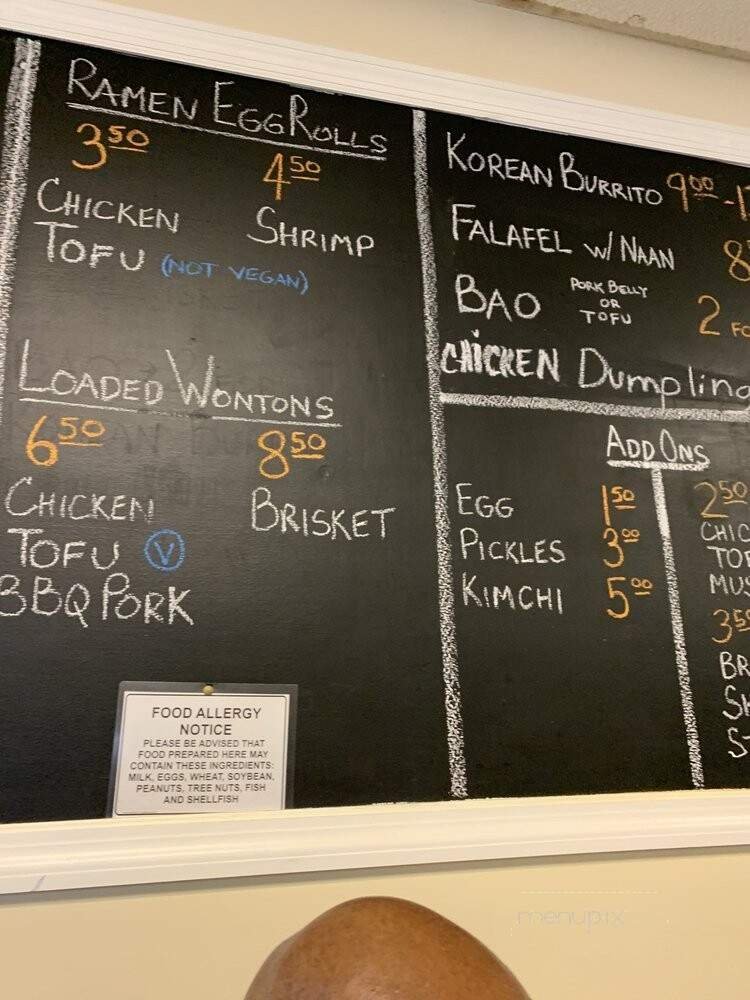 RAMEN EGG ROLLS
3.50 4.50
CHICKEN SHRIMP
TOFU (NOT VEGAN)
LOADED WONTONS
6.50 8.50
CHICKEN BRISKET
TOFU V
BBQ PORK
FOOD ALLERGY
NOTICE
PLEASE BE ADVISED THAT
FOOD PREPARED HERE MAY
CONTAIN THESE INGREDIENTS:
MILK, EGGS, WHEAT, SOYBEAN,
PEANUTS, TREE NUTS, FISH
AND SHELLFISH
KOREAN BURRITO 9.00 -
FALAFEL W/ NAAN 8
BAO PORK BELLY
OR
TOFU
2
CHICKEN Dumpling
ADD ONS
EGG 1.50
PICKLES 3.00
KIMCHI 5.00
2.50
menupix